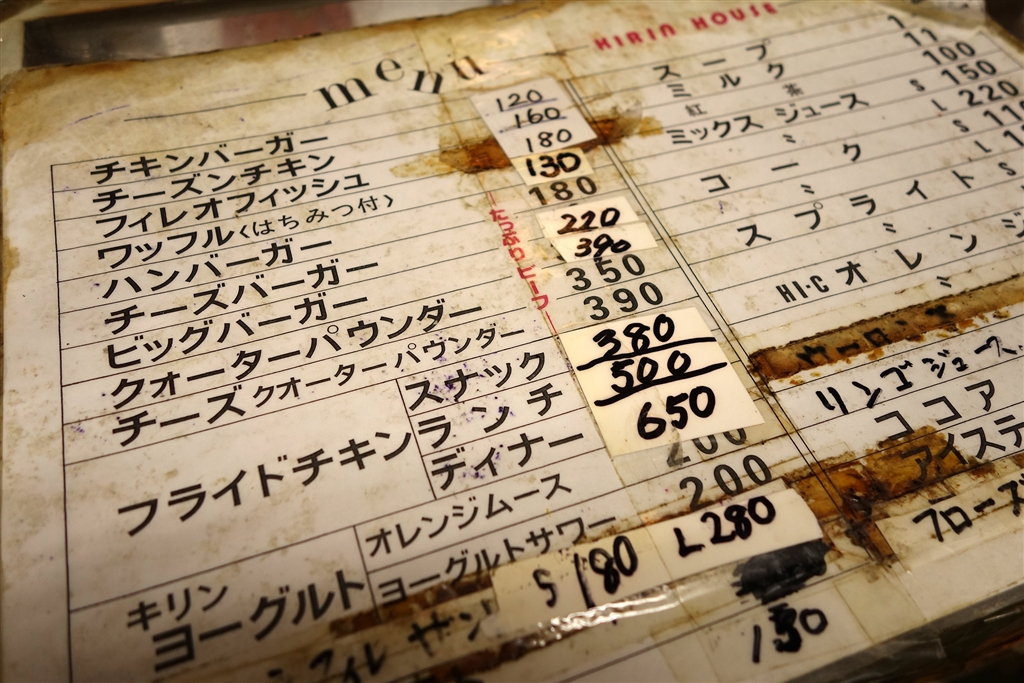 menu
チキンバーガー 120
チーズンチキン 160
フィレオフィッシュ 180
ワッフル〈はちみつ付〉 130
ハンバーガー 180
チーズバーガー 220
ビッグバーガー 390
クォーターパウンダー 350
チーズクォーターパウンダー 390
たっぷりビーフ
フライドチキン
スナック 380
ランチ 500
ディナー 650
キリンヨーグルト
オレンジムース 200
ヨーグルトサワー 200
S 180 L 280
フィレ サン
130
KIRIN HOUSE
スープ
ミルク
紅茶 100
ミックスジュース S 150
ミ L 220
コーク S
ミ L
スプライト S
ミ
HI-C オレンジ
ミ
ウーロン
リンゴジュース
ココア
アイステ
フローズ